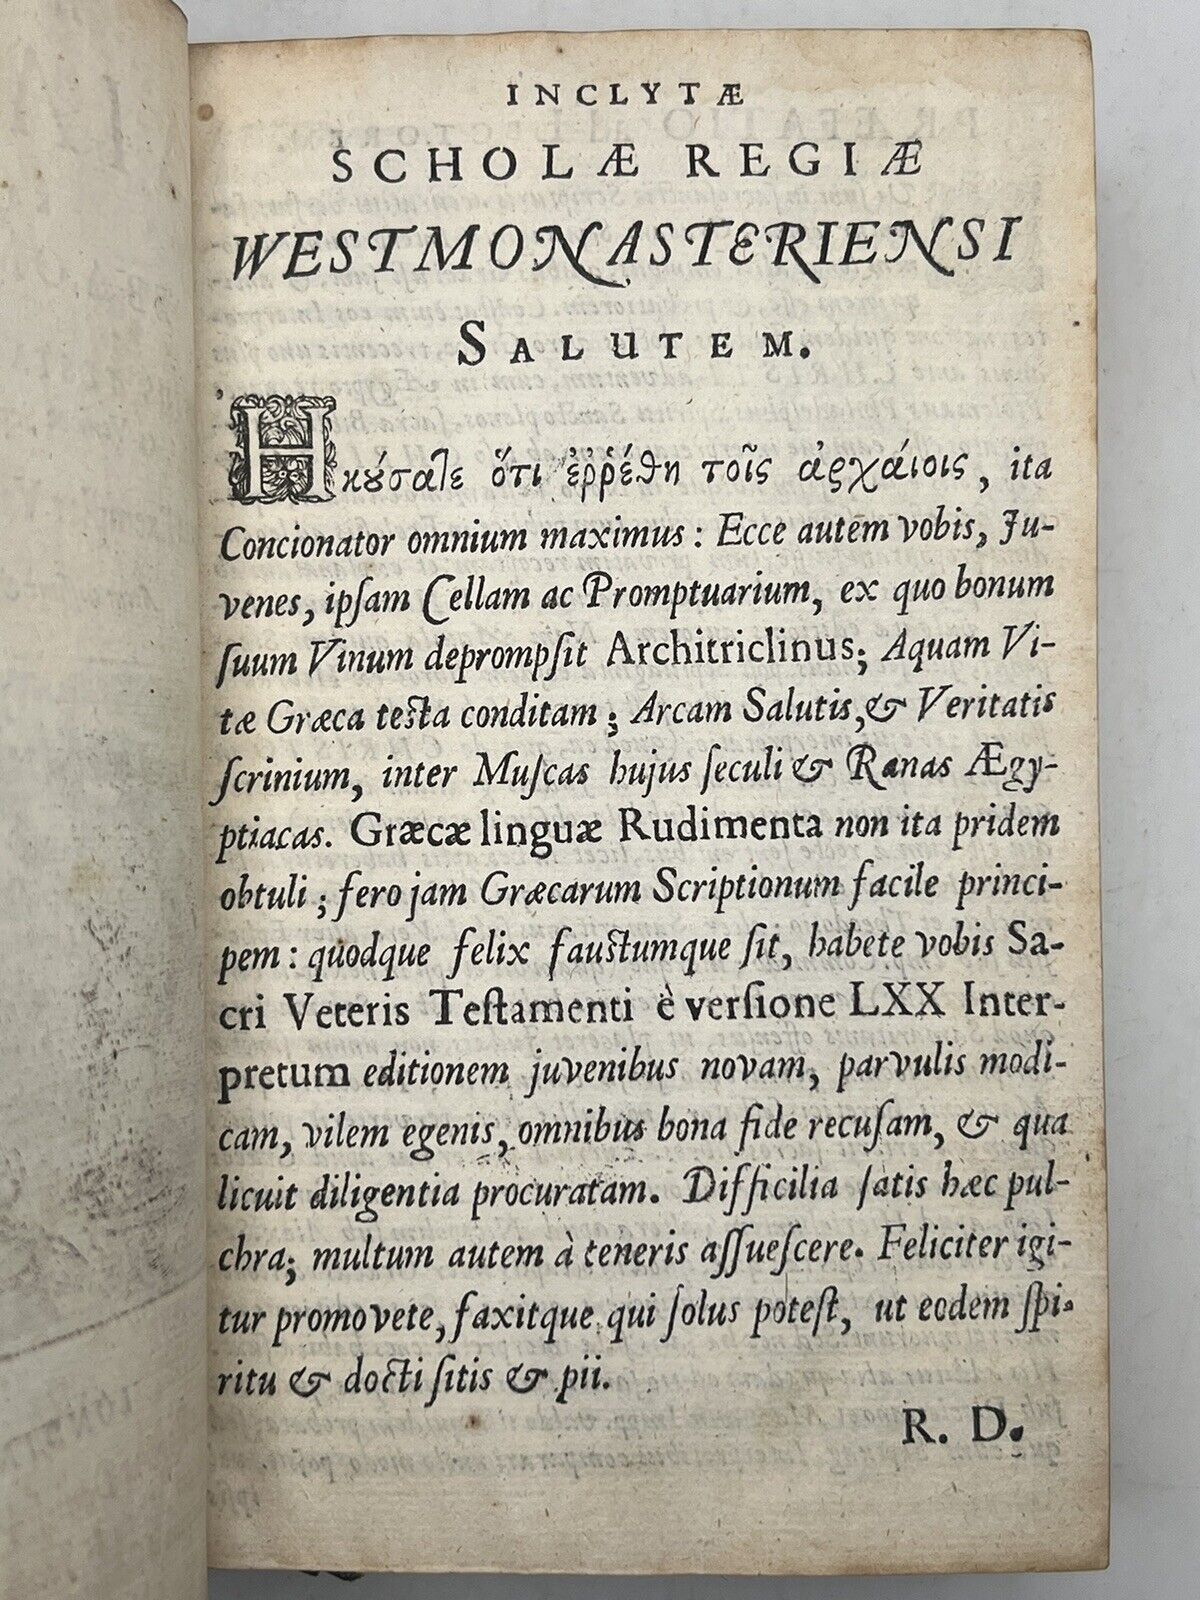 INCLYTÆ
SCHOLÆ REGIÆ
WESTMONASTERIENSI
SALUTEM.
Ηκούσατε ὅτι ἐῤῥέθη τοῖς ἀρχάιοις, ita
Concionator omnium maximus: Ecce autem vobis, Ju-
venes, ipſam Cellam ac Promptuarium, ex quo bonum
ſuum Vinum deprompſit Architriclinus; Aquam Vi-
tæ Græca teſta conditam; Arcam Salutis, & Veritatis
ſcrinium, inter Muſcas hujus ſeculi & Ranas Ægy-
ptiacas. Græcæ linguæ Rudimenta non ita pridem
obtuli; fero jam Græcarum Scriptionum facile princi-
pem: quodque felix fauſtumque ſit, habete vobis Sa-
cri Veteris Teſtamenti è verſione LXX Inter-
pretum editionem juvenibus novam, parvulis modi-
cam, vilem egenis, omnibus bona fide recuſam, & qua
licuit diligentia procuratam. Difficilia ſatis hæc pul-
chra; multum autem à teneris aſſueſcere. Feliciter igi-
tur promovete, faxitque qui ſolus poteſt, ut eodem ſpi-
ritu & docti ſitis & pii.
R. D.